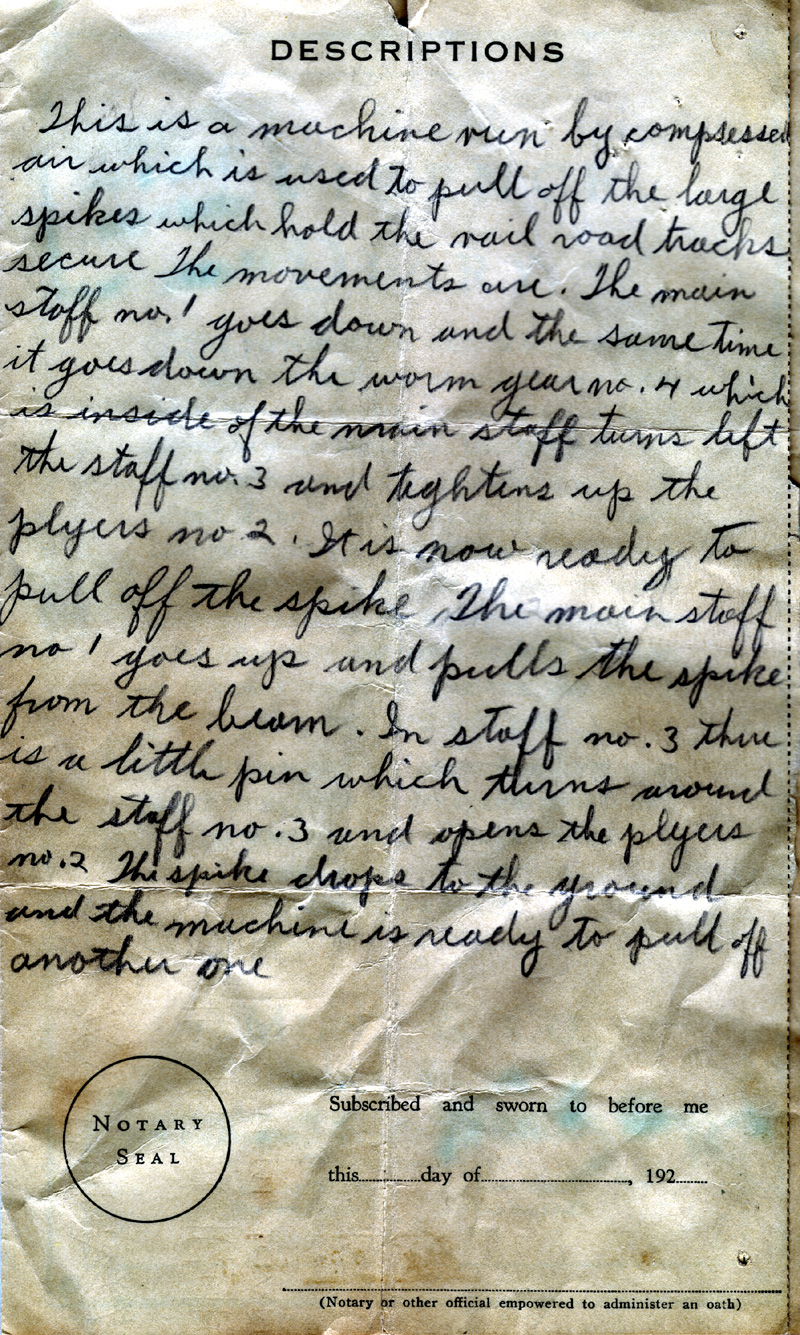 DESCRIPTIONS
This is a machine run by compsessed
air which is used to pull off the large
spikes which hold the rail road tracks
secure The movements are. The main
staff no. 1 goes down and the same time
it goes down the worm gear no. 4 which
is inside of the main staff turns left
the staff no. 3 and tightens up the
plyers no 2. It is now ready to
pull off the spike The main staff
no 1 goes up and pulls the spike
from the beam. In staff no. 3 there
is a little pin which turns around
the staff no. 3 and opens the plyers
no. 2 The spike drops to the ground
and the machine is ready to pull off
another one
NOTARY
SEAL
Subscribed and sworn to before me
this............day of............................, 192......
(Notary or other official empowered to administer an oath)